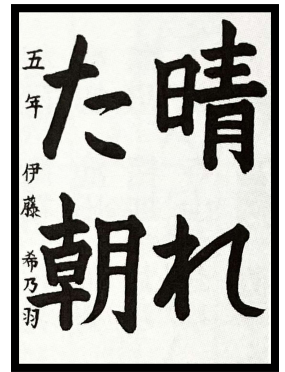 晴れ
た朝
五年 伊藤 希乃羽